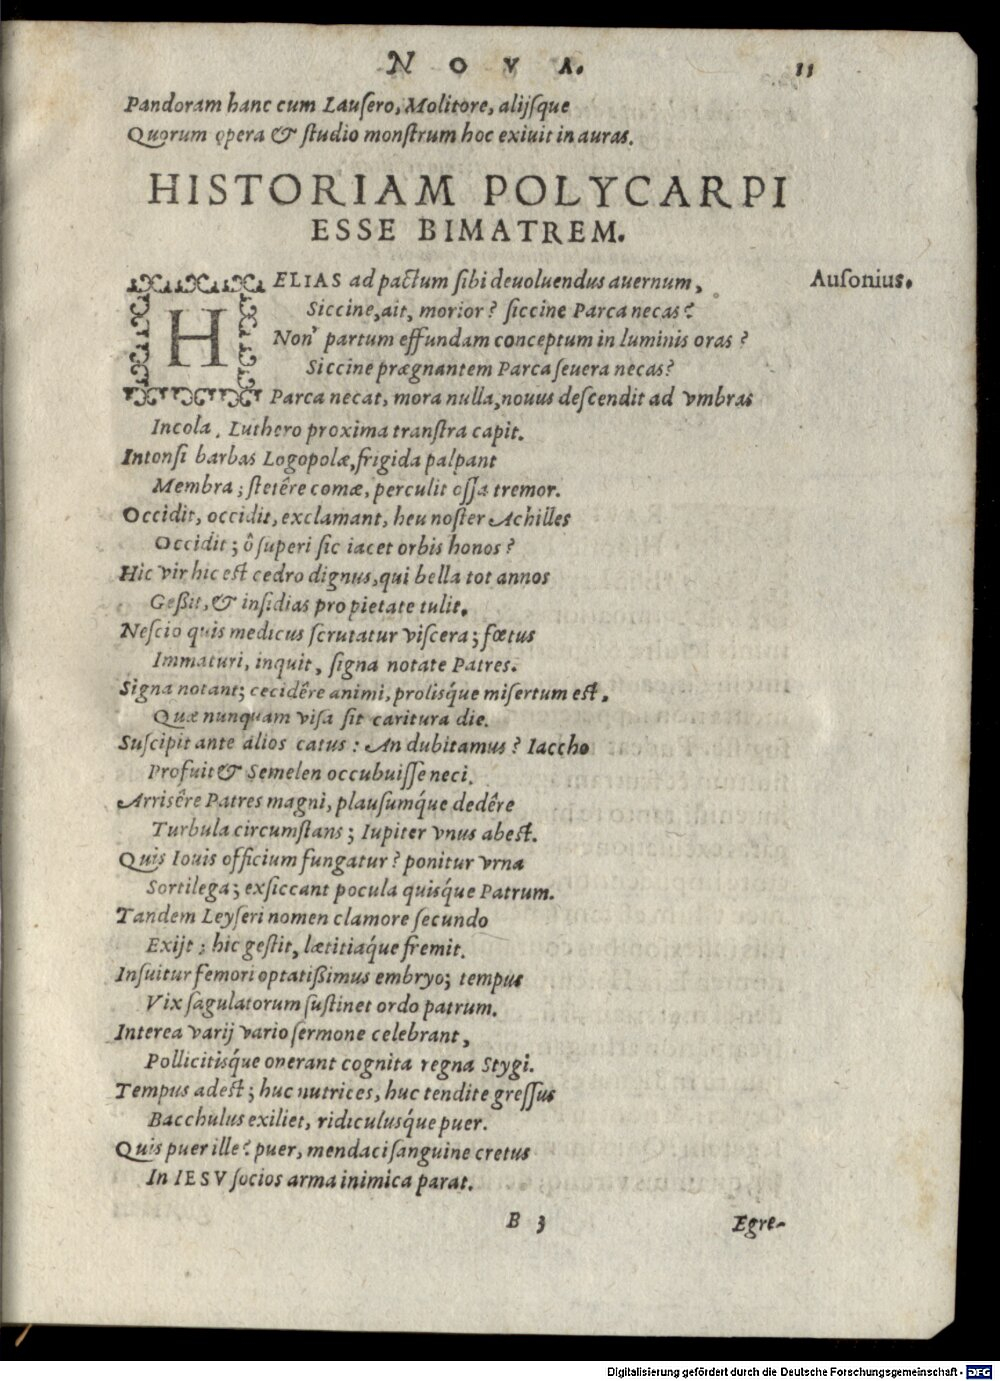 NOVA. 11
Pandoram hanc cum Lausero, Molitore, alijsque
Quorum opera & studio monstrum hoc exiuit in auras.
HISTORIAM POLYCARPI
ESSE BIMATREM.
HELIAS ad pactum sibi deuoluendus auernum, Ausonius.
Siccine, ait, morior? siccine Parca necas?
Non partum effundam conceptum in luminis oras?
Siccine prægnantem Parca seuera necas?
Parca necat, mora nulla, nouus descendit ad vmbras
Incola, Luthero proxima transtra capit.
Intonsi barbas Logopolæ, frigida palpant
Membra; stetêre comæ, perculit ossa tremor.
Occidit, occidit, exclamant, heu noster Achilles
Occidit; ô superi sic iacet orbis honos?
Hic vir hic est cedro dignus, qui bella tot annos
Geßit, & insidias pro pietate tulit.
Nescio quis medicus scrutatur viscera; fœtus
Immaturi, inquit, signa notate Patres.
Signa notant; cecidêre animi, prolisq́ue misertum est,
Quæ nunquam visa sit caritura die.
Suscipit ante alios catus: An dubitamus? Iaccho
Profuit & Semelen occubuisse neci.
Arrisêre Patres magni, plausumq́ue dedêre
Turbula circumstans; Iupiter vnus abest.
Quis Iouis officium fungatur? ponitur vrna
Sortilega; exsiccant pocula quisq́ue Patrum.
Tandem Leyseri nomen clamore secundo
Exijt; hic gestit, lætitiaq́ue fremit.
Insuitur femori optatißimus embryo; tempus
Vix sagulatorum sustinet ordo patrum.
Interea varij vario sermone celebrant,
Pollicitisq́ue onerant cognita regna Stygi.
Tempus adest; huc nutrices, huc tendite gressus
Bacchulus exiliet, ridiculusq́ue puer.
Quis puer ille? puer, mendaci sanguine cretus
In IESV socios arma inimica parat.
B 3 Egre-
Digitalisierung gefördert durch die Deutsche Forschungsgemeinschaft - DFG